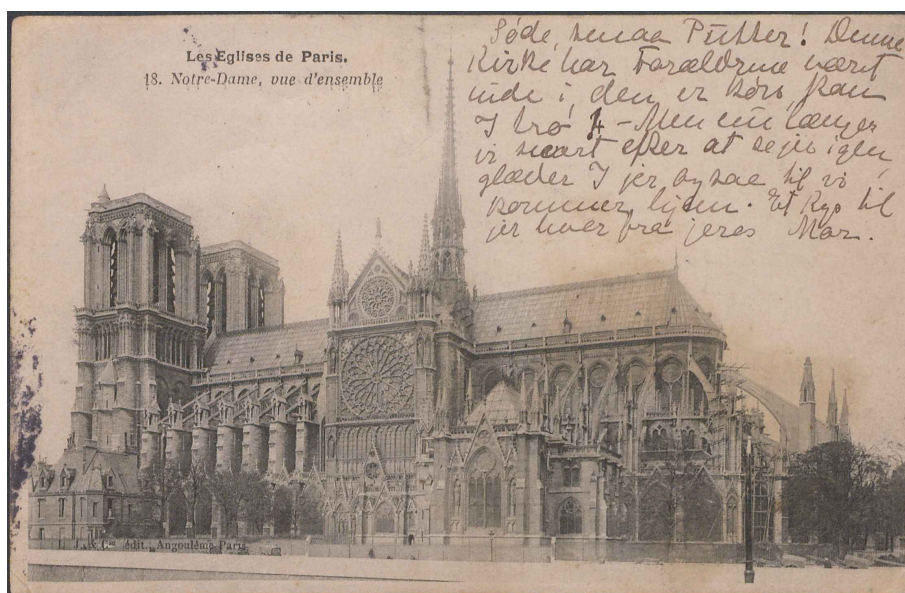 Les Eglises de Paris.
18. Notre-Dame, vue d'ensemble
Søde, smaa Putter! Denne
Kirke har Forældrene været
inde i, den er køn, kan
I tro - Men nu længes
vi svart efter at se jer igen,
glæder I jer ogsaa til vi
kommer hjem. Et Kys til
jer hver fra jeres Mor.
édit., Angoulême-Paris